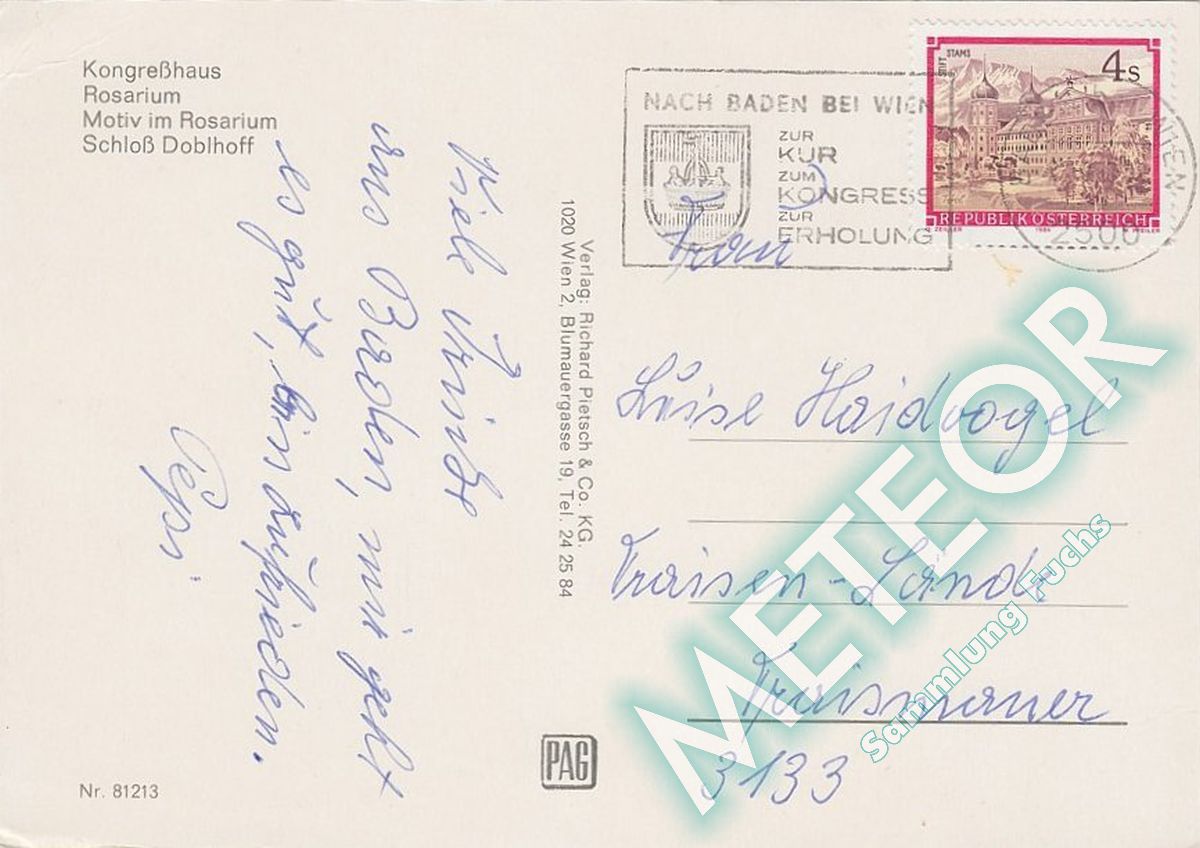 Kongreßhaus
Rosarium
Motiv im Rosarium
Schloß Doblhoff
Viele Grüße
aus Baden, mir geht
es gut, bin zufrieden.
Pepi
Nr. 81213
Verlag: Richard Pietsch & Co. KG.
1020 Wien 2, Blumauergasse 19, Tel. 24 25 84
PAG
NACH BADEN BEI WIEN
ZUR
KUR
ZUM
KONGRESS
ZUR
ERHOLUNG
STIFT STAMS
4s
REPUBLIK ÖSTERREICH
1984
2500
Frau
Luise Haidvogel
Traisen-Lände
Traismauer
3133
METEOR
Sammlung Fuchs